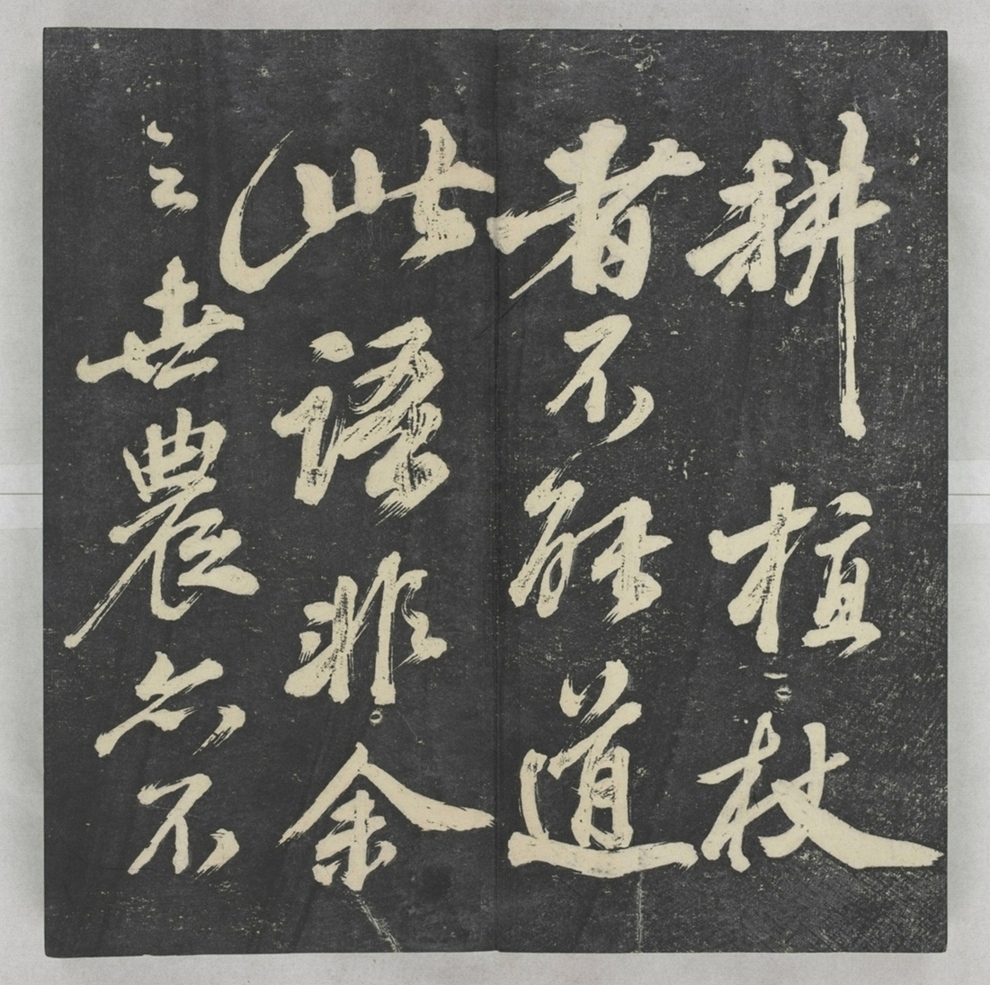 耕植杖
者不能道
此語非余
之世農亦不